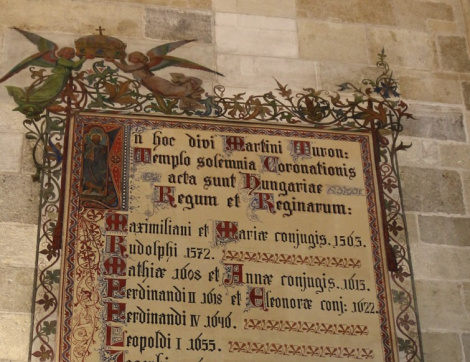 In hoc divi Martini Turon:
Templo solemnia Coronationis
acta sunt Hungariae
Regum et Reginarum:
Maximiliani et Mariæ conjugis. 1563.
Rudolphi 1572.
Mathiæ 1608 et Annæ conjugis. 1613.
Ferdinandi II 1618 et Eleonoræ conj: 1622.
Ferdinandi IV 1646.
Leopoldi I 1655.